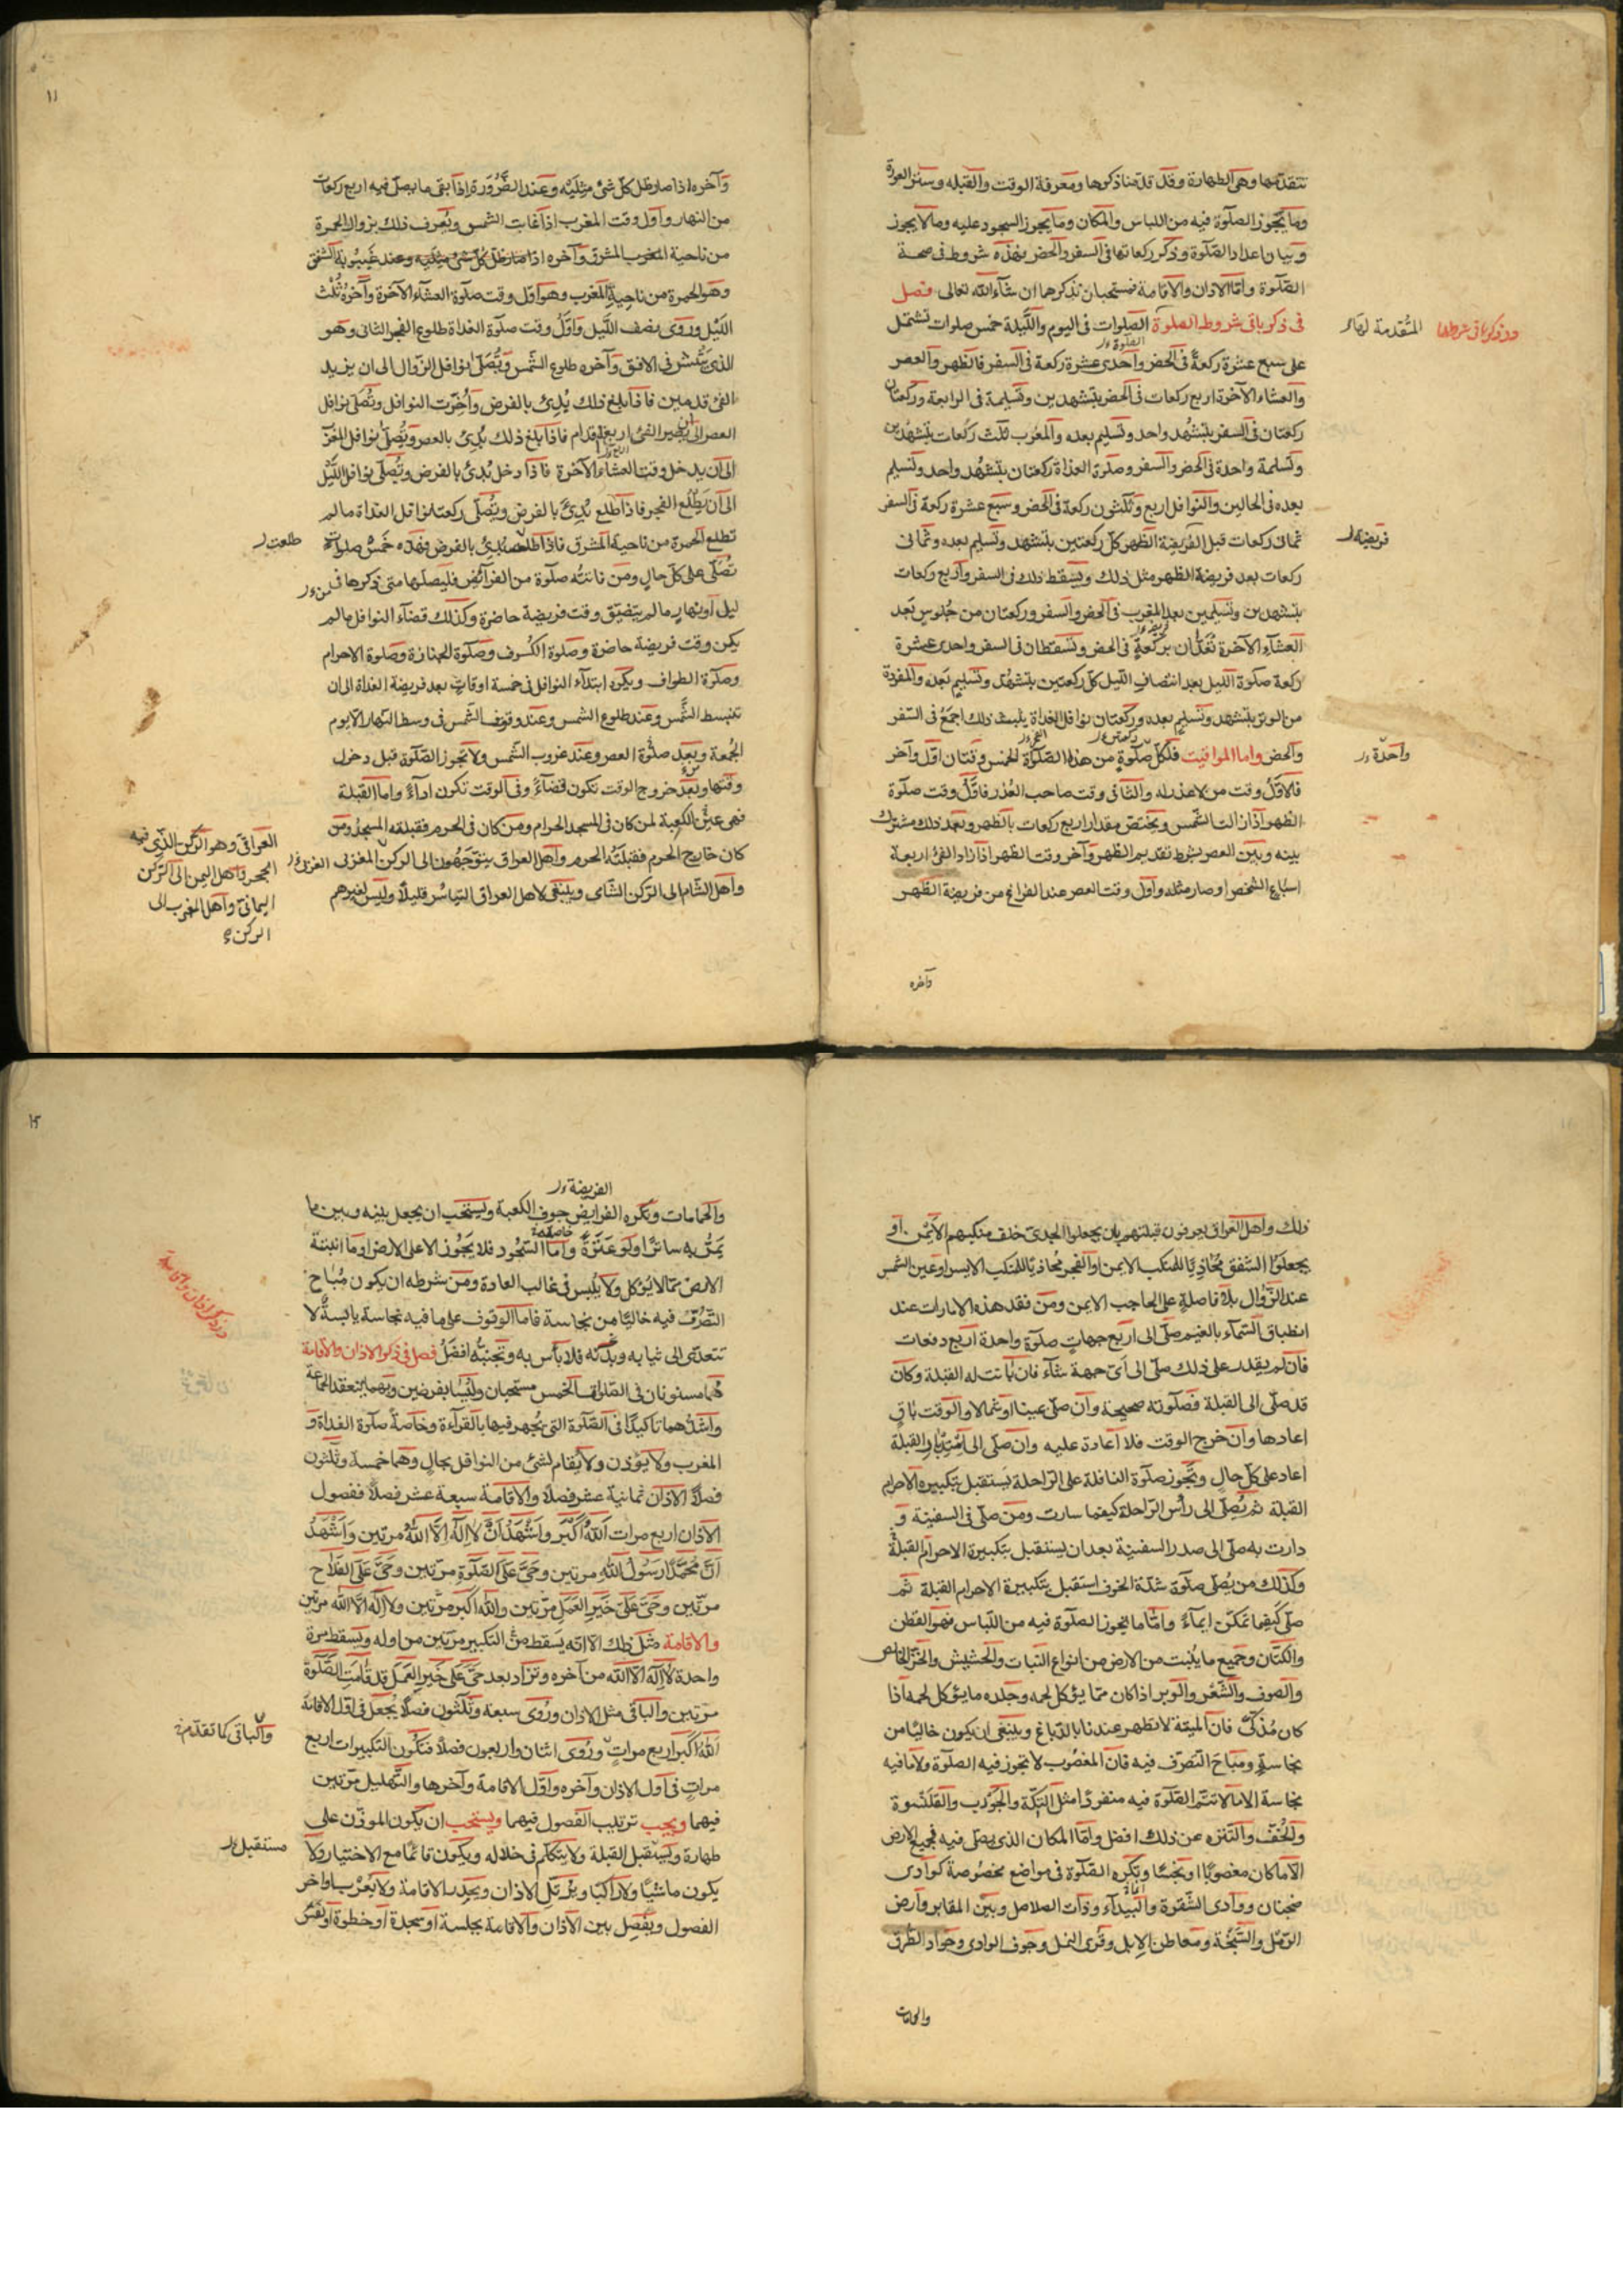 تتقدمها وهى الطهارة وقد قدّمنا ذكرها ومعرفة الوقت والقبله وستر العورة
وما يجوز الصلوة فيه من اللباس والمكان وما يجوز السجود عليه وما لا يجوز
وبيان اعداد الصّلوة وذكر ركعاتها فى السفر والحضر فهذه شروط فى صحة
الصّلوة وامّا الاذان والاقامة فمستحبان نذكرهما ان شآء الله تعالى فصل
فى ذكر باقى شروط الصلوة الصلوات فى اليوم واللّيلة خمس صلوات تشتمل
المتقدمة لها
در ذكر باقى شرطها
الصلوة
على سبع عشرة ركعةً فى الحضر واحدى عشرة ركعة فى السفر فالظهر والعصر
والعشاء الآخرة اربع ركعات فى الحضر بتشهدين وتسليمة فى الرابعة وركعتان
ركعتان فى السفر بتشهّد واحد وتسليم بعده والمغرب ثلث ركعات بتشهدين
وتسليمة واحدة فى الحضر والسفر وصلوة الغداة ركعتان بتشهّد واحد وتسليم
بعده فى الحالين والنوافل اربع وثلثون ركعة فى الحضر وسبع عشرة ركعة فى السفر
ثمانى ركعات قبل الفريضة الظهر كلّ ركعتين بتشهد وتسليم بعده وثمانى
فريضة
ركعات بعد فريضة الظهر مثل ذلك ويسقط ذلك فى السفر واربع ركعات
بتشهدين وتسليمين بعد المغرب فى الحضر والسفر وركعتان من جلوس بعد
العشآء الآخرة تُعَدّان بركعةٍ فى الحضر وتسقطان فى السفر واحدى عشرة
ركعة صلوة الليل بعد انتصاف اللّيل كلّ ركعتين بتشهّد وتسليم بعده والمفردة
من الوتر بتشهد وتسليم بعده وركعتان نوافل الغداة يثبت ذلك اجمعُ فى السّفر
والحضر واما المواقيت فلكلّ صلوةٍ من هذه الصّلوة الخمس وقتان اوّل وآخر
واحدة
فالاوّلُ وقت من لا عذر له والثانى وقت صاحب العُذر فاوّلُ وقت صلوة
الظهر اذا زالت الشّمس ويختصّ مقدار اربع ركعات بالظهر وبعد ذلك مشترك
بينه وبين العصر بشرط تقديم الظهر وآخر وقت الظهر اذا زاد الفئ اربعة
اسباع الشخص او صار مثله واوّل وقت العصر عند الفراغ من فريضة الظهر
وآخره
وآخره اذا صار ظل كلّ شئ مثليه وعند الضّرورة اذا بقى ما يصلّ فيه اربع ركعات
من النهار واول وقت المغرب اذا غابت الشمس ويُعرف ذلك بزوال الحمرة
من ناحية المغرب المشرق وآخره اذا صار ظل كلّ شئ مثليه وعند غيبوبة الشفق
وهو الحمرة من ناحية المغرب وهو اوّل وقت صلوة العشآء الآخرة وآخره ثُلث
اللّيل وروى نصف اللّيل واوّلُ وقت صلوة الغداة طلوع الفجر الثانى وهو
الذى ينتشر فى الافق وآخره طلوع الشّمس ويُصلّى نوافل الزّوال الى ان يزيد
الفئ قدمين فاذا بلغ ذلك بُدِئ بالفرض وأُخّرت النوافل وتُصلّى نوافل
العصر الى ان يصير الفئ اربعة اقدام فاذا بلغ ذلك بُدِئ بالعصر ويُصلّ نوافل المغرب
الى ان يدخل وقت العشاء الآخرة فاذا دخل بُدِئ بالفرض ويُصلّى نوافل اللّيل
الى ان يَطلُع الفجر فاذا طلع بُدِئ بالفرض ويُصلّى ركعتا نوافل الغداة ما لم
تطلع الحمرة من ناحية المشرق فاذا طلعت بُدِئ بالفرض فهذه خمسُ صلوات
طلعت
تُصلّى على كلّ حالٍ ومَن فاتته صلوة من الفرآئض فليصلّها متى ذكرها فى
من
ليل او نهارٍ ما لم يتضيّق وقت فريضة حاضرة وكذلك قضآء النوافل ما لم
يكن وقت فريضة حاضرة وصلوة الكسوف وصلوة الجنازة وصلوة الاحرام
وصلوة الطواف ويكره ابتدآء النوافل فى خمسة اوقاتٍ بعد فريضة الغداة الى ان
تنبسط الشّمس وعند طلوع الشمس وعند وقوف الشّمس فى وسط النهار الّا يوم
الجُمعة وبعد صلوة العصر وعند غروب الشّمس ولا تجوز الصّلوة قبل دخول
وقتها وبعد خروج الوقت تكون قضآءً وفى الوقت تكون ادآءً واما القبلة
فهى عينُ الكعبة لمن كان فى المسجد الحرام ومن كان فى الحرم فقبلته المسجدُ ومن
كان خارج الحرم فقبلته الحرم واهل العراق يتوجّهون الى الركن المغربى
واهل الشّام الى الركن الشّامى وينبغى لاهل العراق التياسُر قليلًا وليس لغيرهم
العراقى وهو الركن الذى فيه
الحجر واهل اليمن الى الركن
اليمانى واهل المغرب الى
الركن
ذلك واهل العراق يعرفون قبلتهم بان يجعلوا الجدى خلف منكبهم الايمن او
يجعلوا الشّفق محاذيًا للمنكب الايمن او الفجر محاذيًا للمنكب الايسر او عين الشمس
عند الزّوال بلا فاصلةٍ على الحاجب الايمن ومن فقد هذه الامارات عند
انطباق السّمآء بالغيم صلّى الى اربع جهاتٍ صلوةً واحدة اربع دفعات
فان لم يقدر على ذلك صلّى الى اىّ جهة شآء فان بانت له القبلة وكان
قد صلّى الى القبلة فصلوته صحيحة وان صلّى يمينا او شمالا والوقت باقٍ
اعادها وان خرج الوقت فلا اعادة عليه وان صلّى الى استدبار القبلة
اعاد على كلّ حالٍ وتجوز صلوة النافلة على الرّاحلة يستقبل بتكبيره الاحرام
القبلة ثم يُصلّى الى رأس الرّاحلة كيفما سارت ومن صلّى فى السفينة و
دارت به صلّى الى صدر السفينة بعد ان يستقبل بتكبيرة الاحرام القبلة
وكذلك من يُصلّى صلوة شدّة الخوف استقبل بتكبيرة الاحرام القبلة ثم
صلّى كيفما تمكّن ايماءً وامّا ما يجوز الصلوة فيه من اللّباس فهو القطن
والكتّان وجميع ما ينبت من الارض من انواع النبات والحشيش والخزّ الخالص
والصوف والشّعر والوبر اذا كان ممّا يؤكل لحمه وجلده ما يؤكل لحمه اذا
كان مُذكّى فانّ الميتة لا تطهر عندنا بالدّباغ وينبغى ان يكون خاليًا من
نجاسةٍ ومباحَ التّصرّف فيه فانّ المغصُوب لا تجوز فيه الصلوة ولا ما فيه
نجاسة الّا ما لا تتمّ الصّلوة فيه منفردًا مثل التكّة والجَوْرب والقلنسوة
والخُفّ والتّنزه عن ذلك افضل وامّا المكان الذى يصلّى فيه فجميع الارض
الّا ما كان مغصوبًا او نجسًا وتكره الصّلوة فى مواضع مخصوصة كوادى
ضجنان ووادى الشّقرة والبيدآء وذات الصلاصل وبين المقابر وارض
الرّمل والسّبخة ومعاطن الابل وقُرى النمل وجوف الوادى وجوادّ الطّرق
والحمامات
الفريضة
والحمامات وتكره الفرايض جوف الكعبة ويستحب ان يجعل بينه وبين ما
يمرّ به ساترًا ولو عَنَزةً وامّا السّجود فلا يَجُوز الّا على الارض او ما انبتته
الارض ممّا لا يُؤكل ولا يُلبس فى غالب العادة ومن شرطه ان يكون مُباح
التّصرّف فيه خاليًا من نجاسة فاما الوقوف على ما فيه نجاسة يابسة لا
تتعدّى الى ثيابه وبدنه فلا بأس به وتجنّبه افضلُ فصل فى ذكر الاذان والاقامة
هُما مسنونان فى الصّلوات الخمس مستحبان وليسا بفرضين وبهما ينعقد الجماعة
واشدّهما تاكيدًا فى الصّلوة التى يُجهر فيها بالقرآءة وخاصّة صلوة الغداة و
المغرب ولا يؤذن ولا يُقام لشئ من النوافل بحالٍ وهُما خمسة وثلثون
فصلًا الاذان ثمانية عشر فصلًا والاقامة سبعة عشر فصلًا ففصول
الاذان اربع مرات اَللّهُ اَكبَر واَشهَدُ اَنْ لا اِلهَ اِلّا اللّهُ مرتين واَشهَدُ
اَنَّ مُحَمّدًا رَسُولُ اللّهِ مرتين وحَىَّ عَلَى الصّلوةِ مرّتين وحَىَّ عَلَى الفَلاح
مرّتين وحَىَّ عَلَى خَيرِ العَمَل مرّتين واللّه اكبر مرّتين ولا اله الّا اللّه مرّتين
والاقامة مثل ذلك الّا انّه يسقط من التكبير مرّتين من اوله ويسقط مرة
واحدة لا اله الا اللّه من آخره وتزاد بعد حىّ على خير العمل قد قامت الصّلوة
مرّتين والباقى مثل الاذان وروى سبعة وثلثون فصلًا يُجعل فى اوّل الاقامة
والباقى كما تقدّم
اللّه اكبر اربع مراتٍ وروى اثنان واربعون فصلًا فتكون التكبيرات اربع
مرات فى اول الاذان وآخره واوّل الاقامة وآخرها والتّهليل مرّتين
فيهما ويجب ترتيب الفصول فيهما ويستحب ان يكون الموذّن على
طهارة ويستقبل القبلة ولا يتكلّم فى خلاله ويكون قائمًا مع الاختيار ولا
مستقبل
يكون ماشيًا ولا راكبًا ويُرتّل الاذان ويحدر الاقامة ولا يُعرب اواخر
الفصول ويُفصِل بين الاذان والاقامة بجلسة او سجدة او خطوة او نفس